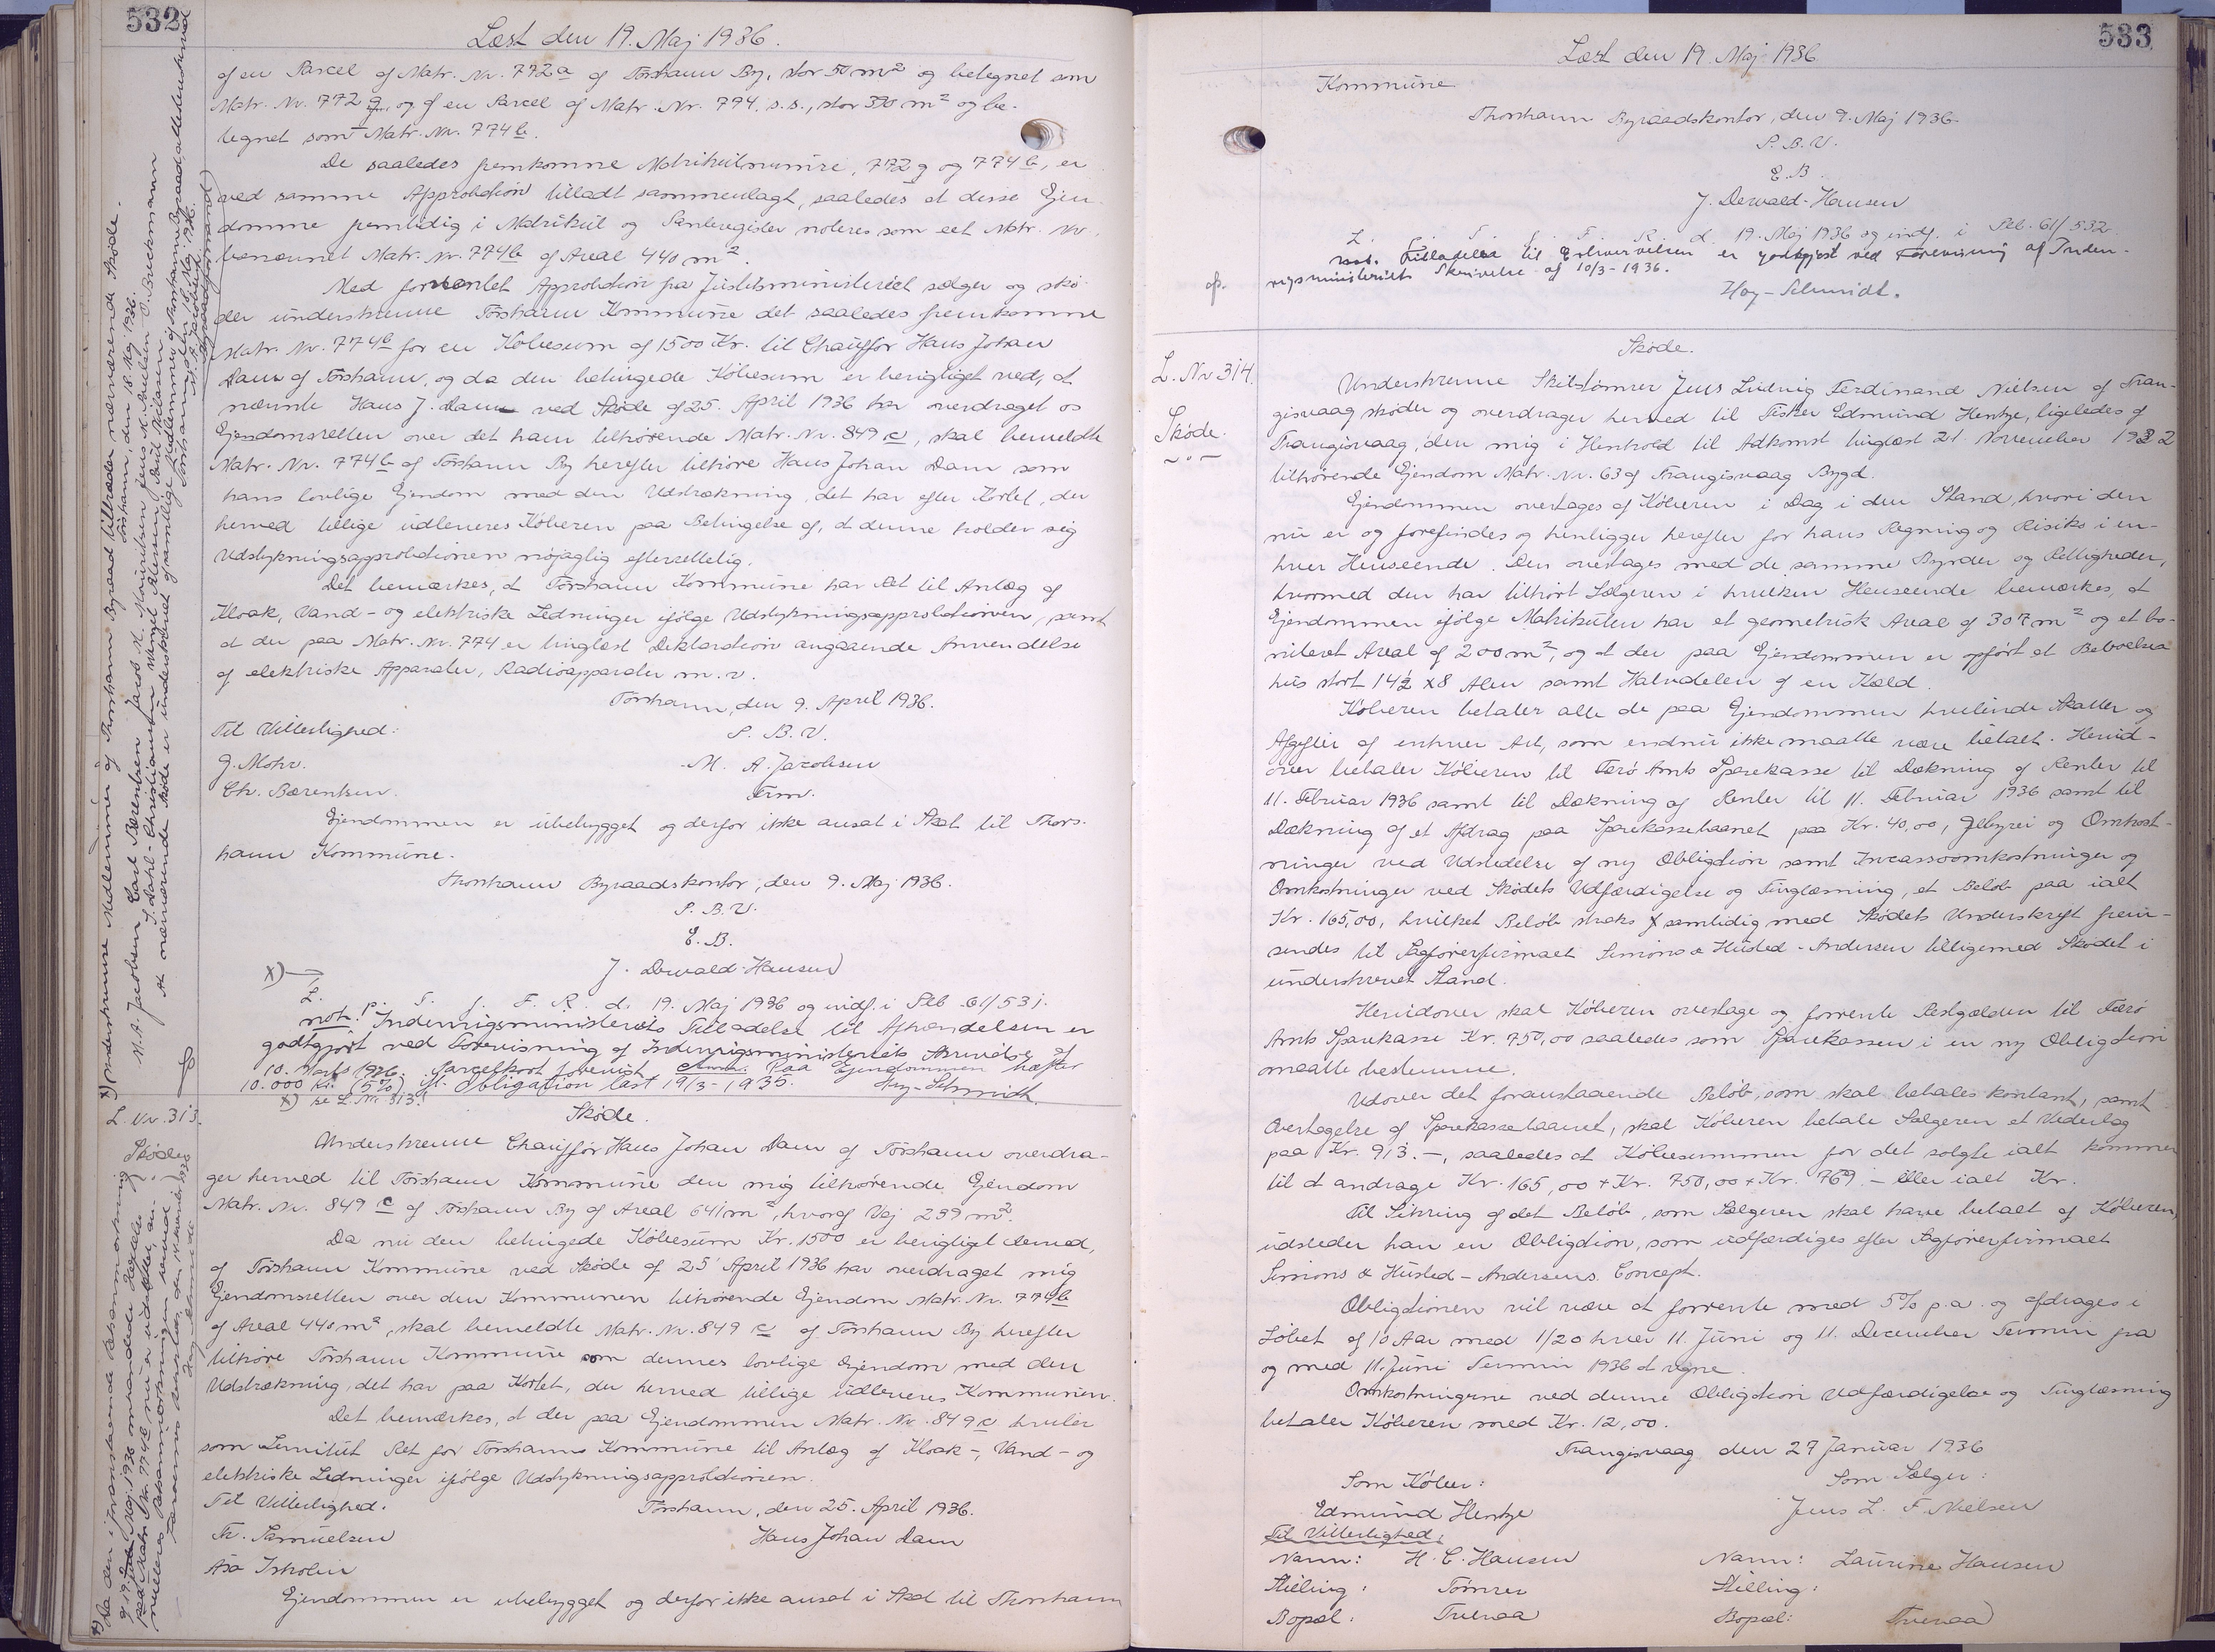 532
Læst den 19. Maj 1936.
af en Parcel af Matr. Nr. 772a af Tórshavn By, stor 50 m² og betegnet som
Matr. Nr. 772 g, og af en Parcel af Matr. Nr. 774. s.s., stor 390 m² og be-
tegnet som Matr. Nr. 774b.
De saaledes fremkomne Matrikulnumre, 772g og 774b, er
ved samme Approbation tilladt sammenlagt, saaledes at disse Ejen-
domme fremtidig i Matrikul og Panteregister noteres som eet Matr. Nr.
benævnet Matr. Nr. 774b af Areal 440 m².
Med forventet Approbation fra Justitsministeriet sælger og skø-
der undertegnede Tórshavn Kommune det saaledes fremkomne
Matr. Nr. 774b for en Købesum af 1500 Kr. til Chauffør Hans Johan
Dam af Tórshavn, og da den betingede Købesum er berigtiget ved, at
nævnte Hans J. Dam ved Skøde af 25. April 1936 har overdraget os
Ejendomsretten over det ham tilhørende Matr. Nr. 849 c, skal bemeldte
Matr. Nr. 774b af Tórshavn By herefter tilhøre Hans Johan Dam som
hans lovlige Ejendom med den Udstrækning, det har efter Kortet, der
herved tillige udleveres Køberen paa Betingelse af, at denne holder sig
Udstykningsapprobationen nøjagtig efterrettelig.
Det bemærkes, at Tórshavn Kommune har Ret til Anlæg af
Kloak, Vand- og elektriske Ledninger ifølge Udstykningsapprobationen, samt
at der paa Matr. Nr. 774 er tinglæst Deklaration angaaende Anvendelse
af elektriske Apparater, Radioapparater m.v.
Tórshavn, den 9. April 1936.
Til Vitterlighed: P. B. V.
G. Mohr. M. A. Jacobsen
Ch. Bærentsen. Frm.
Ejendommen er ubebygget og derfor ikke ansat i Skat til Thors-
havn Kommune.
Thorshavn Byraadskontor, den 9. Maj 1936.
P. B. V.
E. B.
J. Dewald-Hansen
x)→
L. P. T. f. F. R. d. 19. Maj 1936 og indf. i Pb. 61/531.
not. Indenrigsministeriets Tilladelse til Afhændelsen er
godtgjort ved Forevisning af Indenrigsministeriets Skrivelse af
10. Marts 1936. Parcelkort forevist. Paa Ejendommen hæfter
10.000 Kr. (5%) ifl. Obligation læst 19/3-1935. Høy-Schmidt.
x) se L. Nr. 313!
L. Nr. 313.
Skøde
Skøde.
Underskrevne Chauffør Hans Johan Dam af Tórshavn overdra-
ger herved til Tórshavn Kommune den mig tilhørende Ejendom
Matr. Nr. 849 c af Tórshavn By af Areal 641 m², hvoraf Vej 239 m².
Da nu den betingede Købesum Kr. 1500 er berigtiget derved,
at Tórshavn Kommune ved Skøde af 25 April 1936 har overdraget mig
Ejendomsretten over den Kommunen tilhørende Ejendom Matr. Nr. 774b
af Areal 440 m², skal bemeldte Matr. Nr. 849 c af Tórshavn By herefter
tilhøre Tórshavn Kommune som dennes lovlige Ejendom med den
Udstrækning, det har paa Kortet, der herved tillige udleveres Kommunen.
Det bemærkes, at der paa Ejendommen Matr. Nr. 849 c hviler
som Servitut Ret for Tórshavns Kommune til Anlæg af Kloak-, Vand- og
elektriske Ledninger ifølge Udstykningsapprobationen.
Til Vitterlighed. Tórshavn, den 25. April 1936.
Th. Samuelsen Hans Johan Dam
Ejendommen er ubebygget og derfor ikke ansat i Skat til Thorshavn
x) Underskrevne Medlemmer af Thorshavn Byraad tiltræder nærværende Skøde.
Tórshavn, den 18. Maj 1936.
M. A. Jacobsen Carl Bærentsen Jacob K. Mouritsen Jens M. Poulsen O. Brockmann
J. Dahl-Christiansen Poul Nielsen
At nærværende Skøde er underskrevet af samtlige Medlemmer af Thorshavn Byraad, attesteres
Tórshavn 18. Maj 1936.
M. A. Jacobsen
Byraadsformand
533
Læst den 19. Maj 1936
Kommune
Thorshavn Byraadskontor, den 9. Maj 1936.
P. B. V.
E. B.
J. Dewald-Hansen
L. P. T. f. F. R. d. 19. Maj 1936 og indf. i Pb. 61/532.
not. Tilladelse til Erhvervelsen er godtgjort ved Forevisning af Inden-
rigsministeriets Skrivelse af 10/3-1936.
Høy-Schmidt.
L. Nr 314.
Skøde.
Skøde.
Underskrevne Skibstømrer Jens Ludvig Ferdinand Nielsen af Tran-
gisvaag skøder og overdrager herved til Fisker Edmund Hentze, ligeledes af
Trangisvaag, den mig i Henhold til Adkomst tinglæst 21. November 1932
tilhørende Ejendom Matr. Nr. 63 af Trangisvaag Bygd.
Ejendommen overtages af Køberen i Dag i den Stand, hvori den
nu er og forefindes og henligger herefter for hans Regning og Risiko i en-
hver Henseende. Den overtages med de samme Byrder og Rettigheder,
hvormed den har tilhørt Sælgeren i hvilken Henseende bemærkes, at
Ejendommen ifølge Matrikulen har et geometrisk Areal af 307 m² og et bo-
niteret Areal af 200 m², og at der paa Ejendommen er opført et Beboelses
hus stort 14½ x 8 Alen samt Halvdelen af en Kæld.
Køberen betaler alle de paa Ejendommen hvilende Skatter og
Afgifter af enhver Art, som endnu ikke maatte være betalt. Herud-
over betaler Køberen til Færø Amts Sparekasse til Dækning af Renter til
11. Februar 1936 samt til Dækning af Renter til 11. Februar 1936 samt til
Dækning af et Afdrag paa Sparekasselaanet paa Kr. 40,00, Gebyrer og Omkost-
ninger ved Udstedelse af ny Obligation samt Incassoomkostninger og
Omkostninger ved Skødets Udfærdigelse og Tinglæsning, et Beløb paa ialt
Kr. 165,00, hvilket Beløb straks samtidig med Skødets Underskrift frem-
sendes til Sagførerfirmaet Simons & Husted-Andersen tilligemed Skødet i
underskrevet Stand.
Herudover skal Køberen overtage og forrente Restgælden til Færø
Amts Sparekasse Kr. 750,00 saaledes som Sparekassen i en ny Obligation
maatte bestemme.
Udover det foranstaaende Beløb, som skal betales kontant, samt
Overtagelse af Sparekasselaanet, skal Køberen betale Sælgeren et Vederlag
paa Kr. 913.-, saaledes at Købesummen for det solgte ialt kommer
til at andrage Kr. 165,00 + Kr. 750,00 + Kr. 769.- eller ialt Kr.
Til Sikring af det Beløb, som Sælgeren skal have betalt af Køberen,
udsteder han en Obligation, som udfærdiges efter Sagførerfirmaet
Simons & Husted-Andersens Concept.
Obligationen vil være at forrente med 5% p.a. og afdrages i
Løbet af 10 Aar med 1/20 hver 11. Juni og 11. December Termin fra
og med 11. Juni Termin 1936 at regne.
Omkostningerne ved denne Obligation Udfærdigelse og Tinglæsning
betaler Køberen med Kr. 12,00.
Trangisvaag den 27 Januar 1936
Som Køber: Som Sælger:
Edmund Hentze Jens L. F. Nielsen
Til Vitterlighed:
Navn: H. C. Hansen Navn: Laurine Hansen
Stilling: Tømrer Stilling:
Bopæl: Tveraa Bopæl: Tveraa